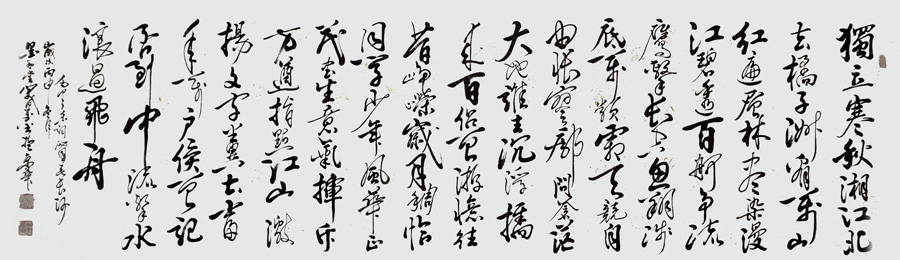 獨立寒秋湘江北
去橘子洲看萬山
紅遍層林盡染漫
江碧透百舸爭流
鷹擊長空魚翔淺
底萬類霜天競自
由悵寥廓問蒼茫
大地誰主沉浮攜
來百侣曾游憶往
昔崢嶸歲月稠恰
同學少年風華正
茂書生意氣揮斥
方遒指點江山激
揚文字糞土當
年萬户侯曾記
否到中流擊水
浪遏飛舟
長沙
歲次丙申冬月